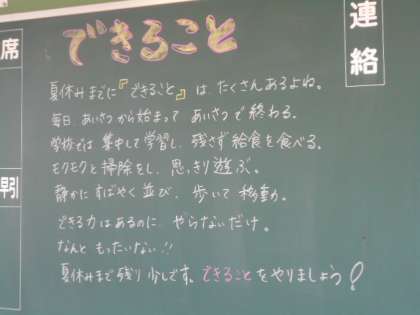 できること
連絡
席
早引
夏休みまでに『できること』は、たくさんあるよね。
毎日、あいさつから始まって あいさつで終わる。
学校では 集中して学習し、残さず給食を食べる。
モクモクと掃除をし、思いっきり遊ぶ。
静かにすばやく並び、歩いて移動。
できる力はあるのに、やらないだけ。
なんと もったいない!!
夏休みまで残り少しです。できることをやりましょう!